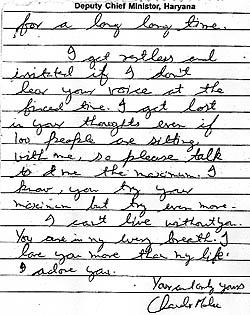 Deputy Chief Minister, Haryana
for a long long time.
I get restless and
irritated if I don't
hear your voice at the
fixed time. I get lost
in your thoughts even if
100 people are sitting
with me, so please talk
to me the maximum. I
know, you try your
maximum but try even more.
I can't live without you.
You are in my every breath. I
love you more than my life.
I adore you.
Your and only yours